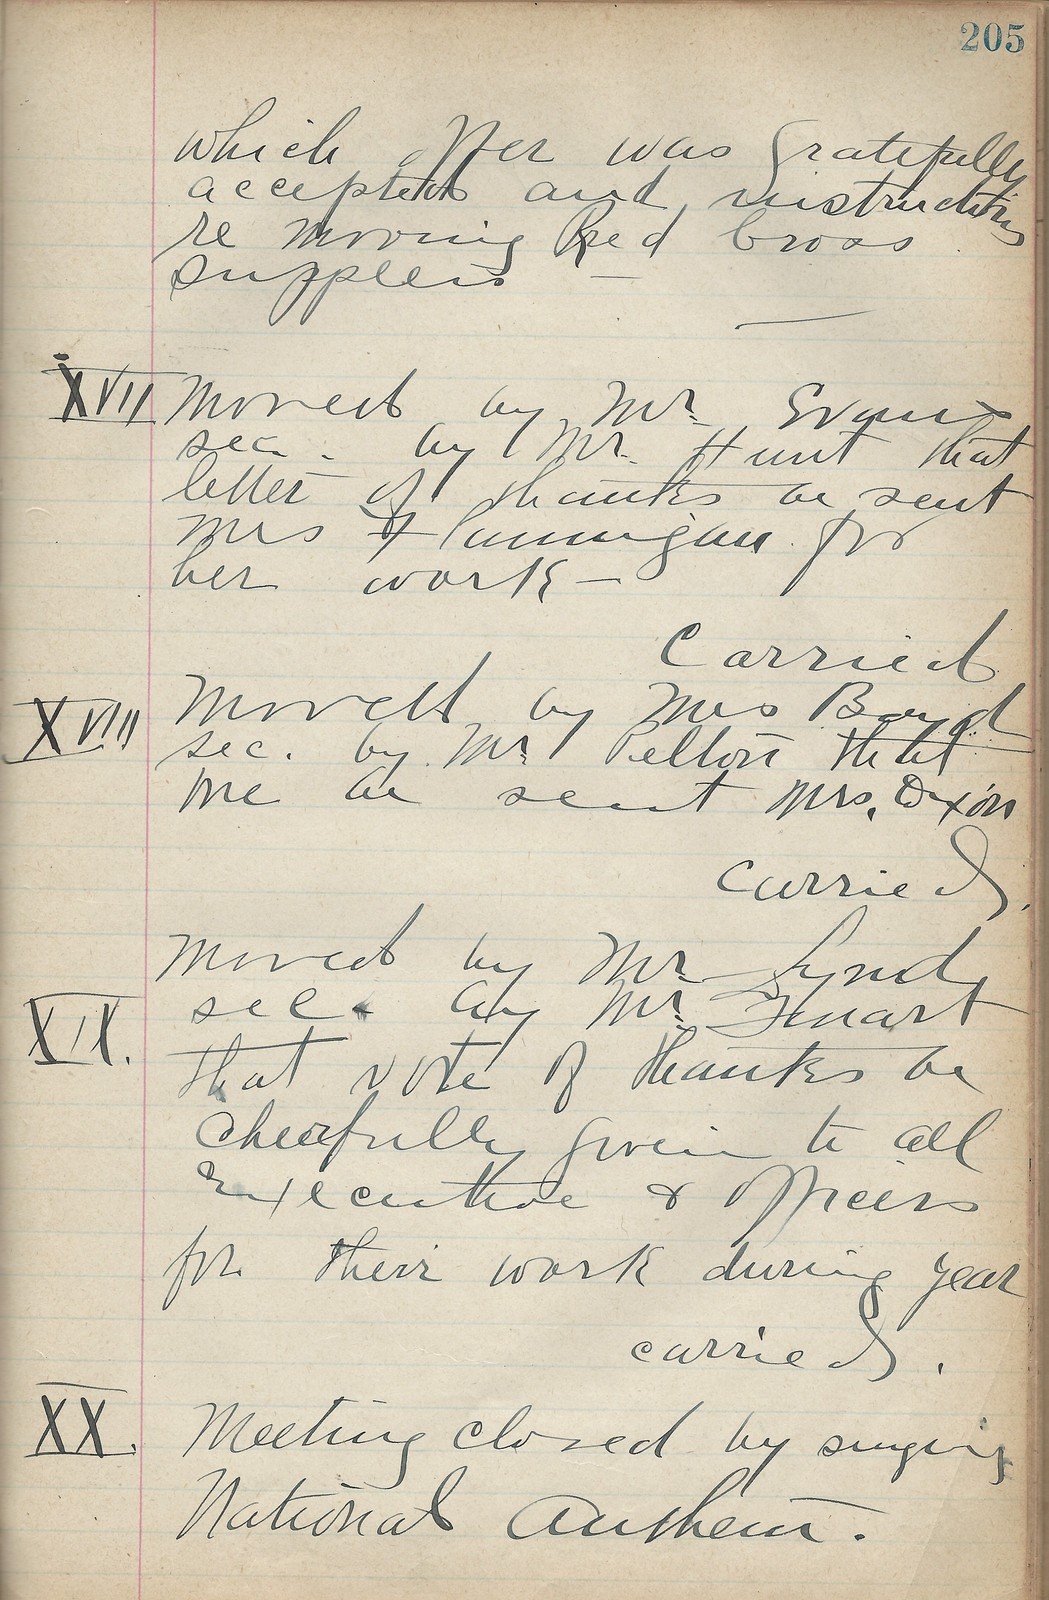 205
which offer was gratefully
accepted and instructions
re moving Red Cross
supplies —
XVII Moved by Mr. Evans
sec. by Mr. Hunt that
letter of thanks be sent
Mrs Flannigan for
her work —
Carried
XVIII Moved by Mrs Boyd
sec. by Mr. Pelton that
one be sent Mrs. Dixon
carried.
Moved by Mr. Lynd
XIX. sec. by Mr. Stuart
that vote of thanks be
cheerfully given to all
Executive & officers
for their work during year
carried.
XX. Meeting closed by singing
National Anthem.